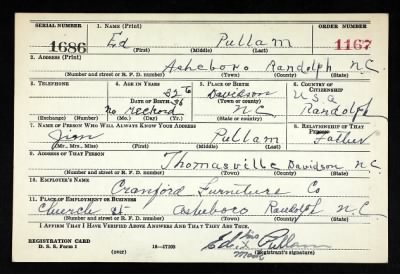 SERIAL NUMBER 1. NAME (Print) ORDER NUMBER
1686 Ed Pullam 1167
(First) (Middle) (Last)
2. ADDRESS (Print)
Asheboro Randolph N.C.
(Number and street or R. F. D. number) (Town) (County) (State)
3. TELEPHONE 4. AGE IN YEARS 5. PLACE OF BIRTH 6. COUNTRY OF CITIZENSHIP
Davidson
DATE OF BIRTH (Town or county) U S A
No Record N.C. Randolph
(Exchange) (Number) (Mo.) (Day) (Yr.) (State or country)
7. NAME OF PERSON WHO WILL ALWAYS KNOW YOUR ADDRESS 8. RELATIONSHIP OF THAT PERSON
Jim Pullam Father
(Mr., Mrs., Miss) (First) (Middle) (Last)
9. ADDRESS OF THAT PERSON
Thomasville Davidson N.C.
(Number and street or R. F. D. number) (Town) (County) (State)
10. EMPLOYER'S NAME
Cranford Furniture Co
11. PLACE OF EMPLOYMENT OR BUSINESS
Church St. Asheboro Randolph N.C.
(Number and street or R. F. D. number) (Town) (County) (State)
I AFFIRM THAT I HAVE VERIFIED ABOVE ANSWERS AND THAT THEY ARE TRUE.
his
Ed X Pullam
Mark
REGISTRATION CARD
D. S. S. Form 1 (over) 16—17105 (Registrant's signature)